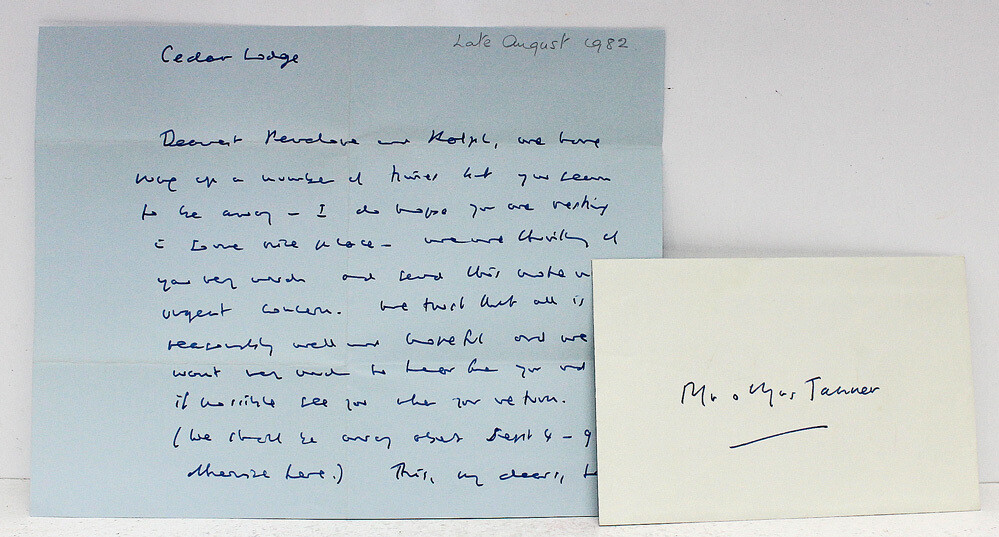 Cedar Lodge
Late August 1982
Dearest Penelope and Rolph, we have
rung up a number of times but you seem
to be away – I do hope you are resting
in some nice place – we are thinking of
you very much and send this note w
urgent concern. We trust that all is
reasonably well and hopeful and we
want very much to hear from you and
if possible see you when you return.
(We shall be away about Sept 4 – 9
otherwise here.) This, my dears, t
Mr & Mrs Tanner